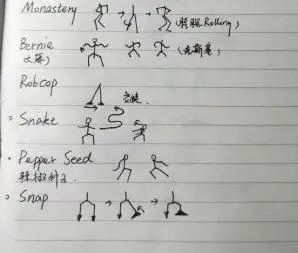 Monastery (臀腿 Rolling)
Bernie
Robcop
Snake
Pepper Seed
辣椒籽
Snap